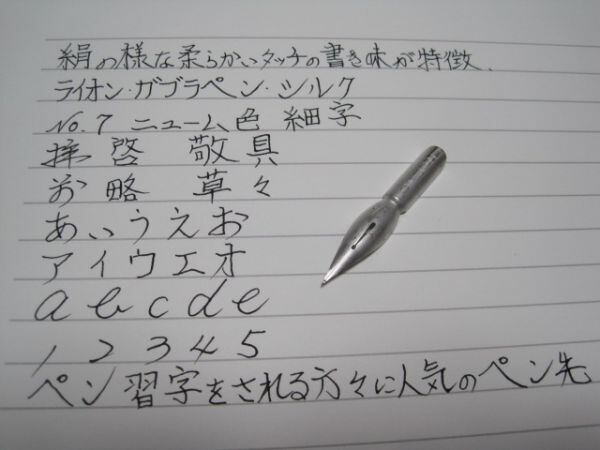 絹の様な柔らかいタッチの書き味が特徴.
ライオン・ガブラペン・シルク
No.7 ニューム色 細字
拝啓 敬具
前略 草々
あいうえお
アイウエオ
a b c d e
1 2 3 4 5
ペン習字をされる方々に人気のペン先